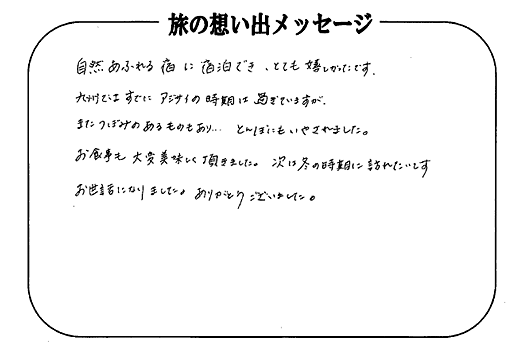 旅の想い出メッセージ
自然あふれる宿に宿泊でき、とても嬉しかったです。
九州ではすでにアジサイの時期は過ぎていますが、
まだつぼみのあるものもあり… とんぼにもいやされました。
お食事も大変美味しく頂きました。次は冬の時期に訪れたいです
お世話になりました。ありがとうございました。